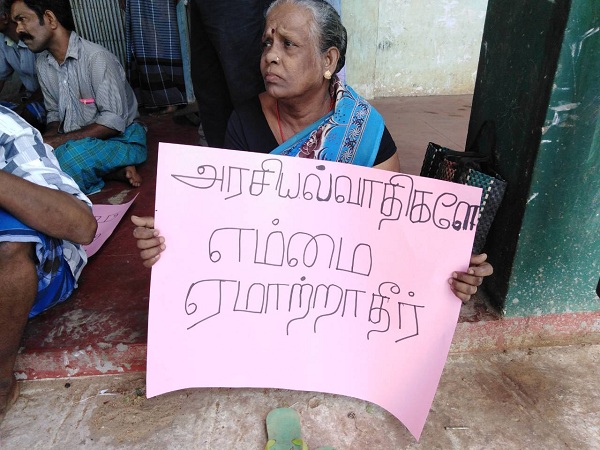 அரசியல்வாதிகளே
எம்மை
ஏமாற்றாதீர்